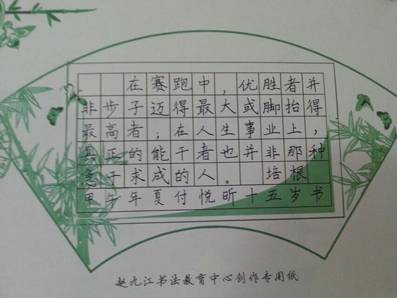 在赛跑中，优胜者并
非步子迈得最大或脚抬得
最高者；在人生事业上，
真正的能干者也并非那种
急于求成的人。 培根
甲午年夏付悦昕十五岁书
赵九江书法教育中心创作专用纸